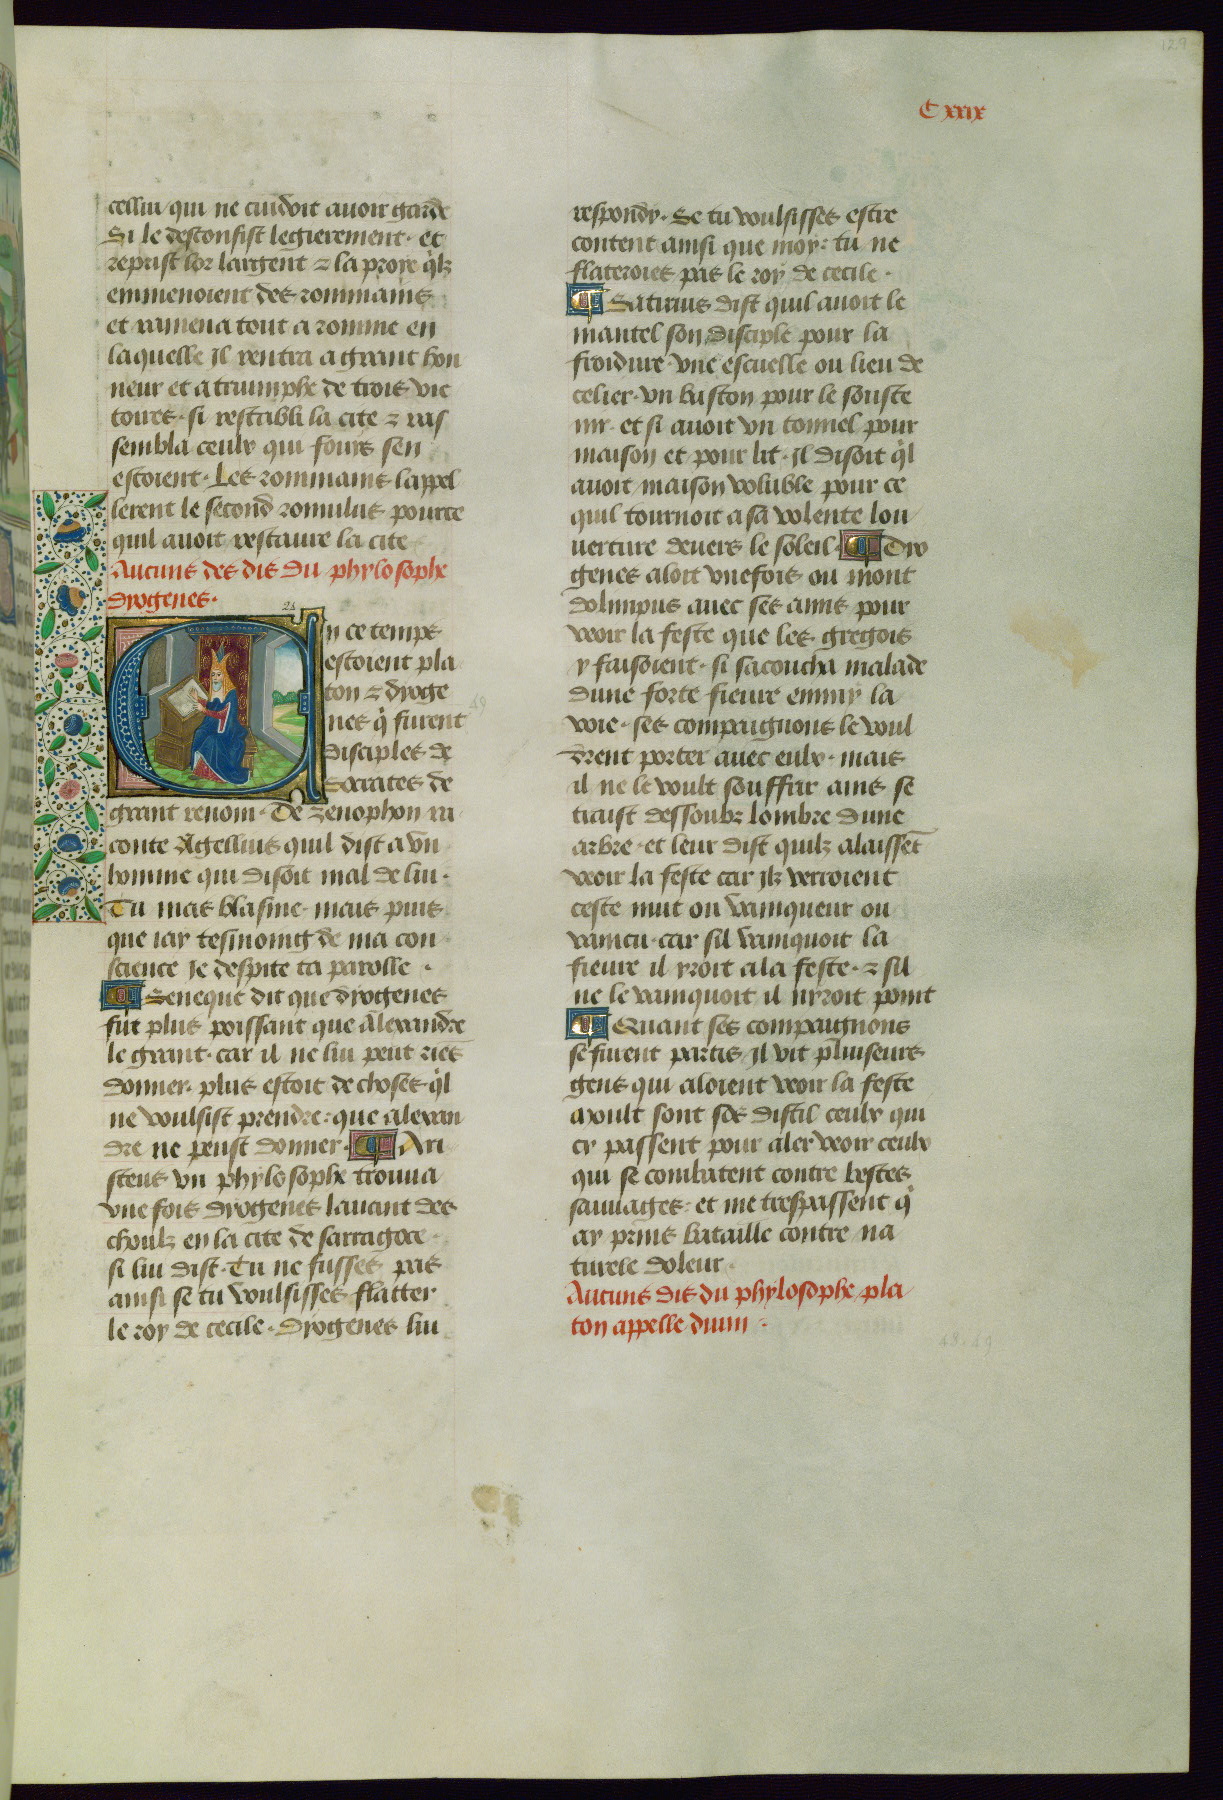 129
C xxix
cellui qui ne cuidoit avoir garde
Si le desconfist legierement· et
reprist lor largent z la proye qlz
emmenoient des rommains
et ramena tout a romme en
laquelle Il rentra a grant hon
neur et a triumphe de trois vic
toires· si restabli la cite z ras
sembla ceulx qui fouys sen
estoient· Les rommains lappel
lerent le second romulus pource
quil avoit restaure la cite
Aucuns des dis du phylosophe
dyogenes·
En ce temps
estoient pla
ton z dyoge
nes q furent
disciples de
Socrates de
grant renom· De zenophon ra
conte Agellius quil dist a vn
homme qui disoit mal de lui·
Tu mas blasme· mais puis
que iay tesmoing de ma con
science Je despite ta parolle·
¶ Seneque dit que dyogenes
fut plus poissant que Alexandre
le grant· car il ne lui peut riēs
donner· plus estoit de choses ql
ne voulsist prendre: que alexan
dre ne peust donner· ¶ Ari
steus vn phylosophe trouua
vne fois dyogenes lauant des
choulz en la cite de sarragoce·
si lui dist· Tu ne fusses pas
ainsi se tu voulsisses flatter
le roy de cecile· Dyogenes lui
respondy· Se tu voulsisses estre
content ainsi que moy: tu ne
flateroies pas le roy de cecile·
¶ Satirius dist quil auoit le
mantel son disciple pour la
froidure vne escuelle ou lieu de
celier· vn baston pour le souste
nir· et si auoit vn tonnel pour
maison et pour lit· Il disoit ql
auoit maison voluble pour ce
quil tournoit a sa volente lou
uerture deuers le soleil· ¶ Dyo
genes aloit vnefois ou mont
dolimpus auec ses amis pour
veoir la feste que les gregois
y faisoient· si sacoucha malade
dune forte fieure emmy la
voie· ses compaignons le voul
drent porter auec eulx· mais
il ne le voult souffrir ains se
traist dessoubz lombre dune
arbre· et leur dist quilz alaissēt
veoir la feste car Ilz verroient
ceste nuit ou vainqueur ou
vaincu· car sil vainquoit la
fieure il yroit a la feste· z sil
ne le vainquoit il nyroit point
¶ Quant ses compaignons
se furent partis Il vit pluiseurs
gens qui aloient veoir la feste
Moult sont sos dist il ceulx qui
cy passent pour aler veoir ceulx
qui se combatent contre bestes
sauuages· et me trespassent q
ay prins bataille contre na
turele doleur·
Aucuns dis du phylosophe pla
ton appelle diuin·